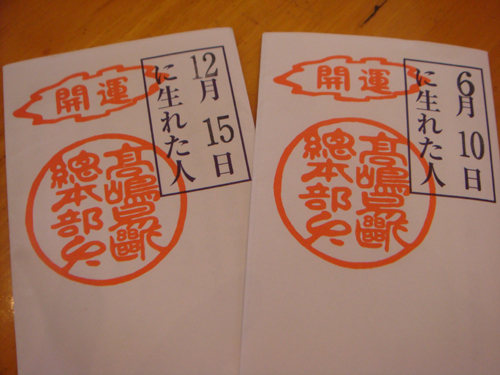 開運
12月 15日
に生れた人
高嶋易斷
總本部
開運
6月 10日
に生れた人
高嶋易斷
總本部